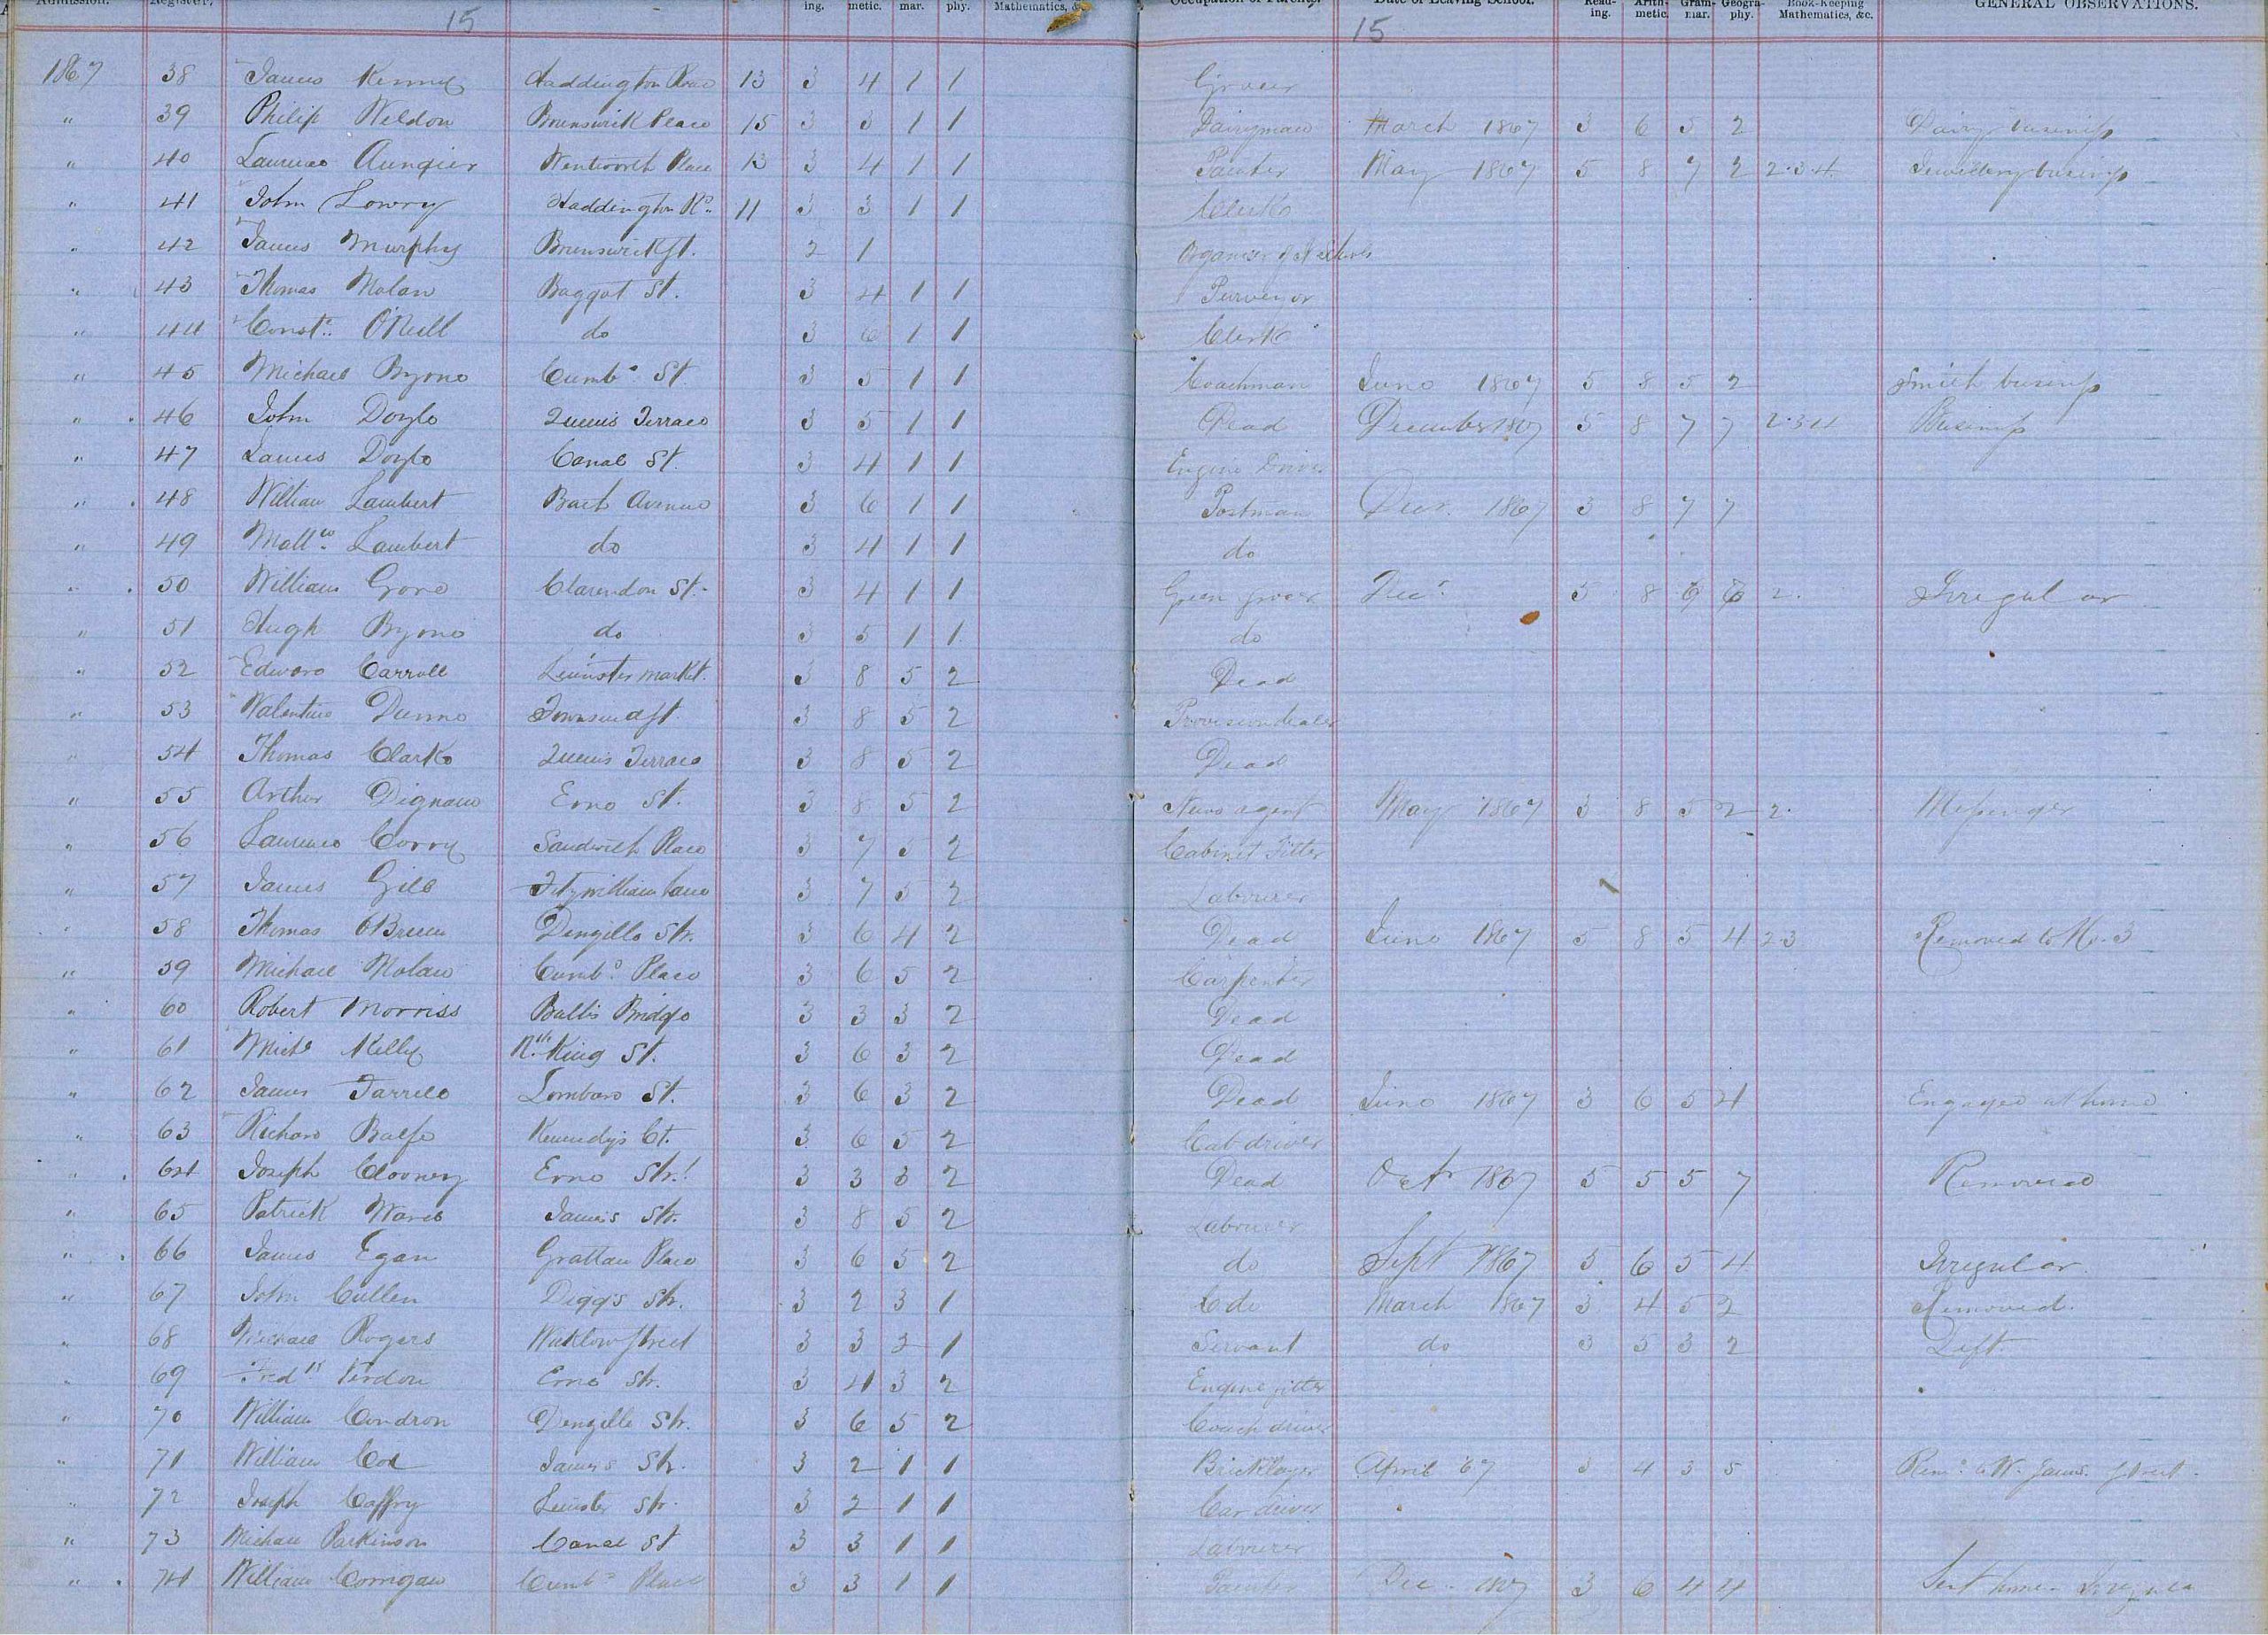 Admission. Register. ing. metic. mar. phy. Mathematics, &c. Occupation of Parents. Date of Leaving School. Read- ing. Arith- metic. Gram- mar. Geogra- phy. Book-Keeping Mathematics, &c. GENERAL OBSERVATIONS.
15 15
1867 38 James Kenny Haddington Road 13 3 4 1 1 Grocer
" 39 Philip Weldon Brunswick Place 15 3 3 1 1 Dairyman March 1867 3 6 5 2 Dairy business
" 40 Laurence Aungier Wentworth Place 13 3 4 1 1 Painter May 1867 5 8 7 2 2.3.4. Jewillery business
" 41 John Lowry Haddington Rd. 11 3 3 1 1 Clerk
" 42 James Murphy Brunswick St. 2 1 Organiser of N Schools
" 43 Thomas Nolan Baggot St. 3 4 1 1 Purveyor
" 44 Const. O'Neill do 3 6 1 1 Clerk
" 45 Michael Byrne Cumbd. St. 3 5 1 1 Coachman June 1867 5 8 5 2 Smith business
" 46 John Doyle Queens Terrace 3 5 1 1 Dead December 1867 5 8 7 7 2.3.4 Business
" 47 James Doyle Canal St. 3 4 1 1 Engine Driver
" 48 William Lambert Bath Avenue 3 6 1 1 Postman Decr. 1867 3 8 7 7
" 49 Mattw. Lambert do 3 4 1 1 do
" 50 William Gore Clarendon St. 3 4 1 1 Green grocer Decr. 5 8 6 6 2. Irregular
" 51 Hugh Byrne do 3 5 1 1 do
" 52 Edward Carroll Leinster Market. 3 8 5 2 Dead
" 53 Valentine Dunne Townsend St. 3 8 5 2 Provision dealer
" 54 Thomas Clarke Queens Terrace 3 8 5 2 Dead
" 55 Arthur Dignam Erne St. 3 8 5 2 News agent May 1867 3 8 5 2 2. Messenger
" 56 Laurence Corry Sandwith Place 3 7 5 2 Cabinet Fitter
" 57 James Gill Fitzwilliam Lane 3 7 5 2 Labourer
" 58 Thomas O'Brien Denzille Str. 3 6 4 2 Dead June 1867 5 8 5 4 2.3 Removed to No. 3
" 59 Michael Nolan Cumbd. Place 3 6 5 2 Carpenter
" 60 Robert Morriss Balls Bridge 3 3 3 2 Dead
" 61 Michl Kelly Nth. King St. 3 6 3 2 Dead
" 62 James Farrell Lombard St. 3 6 3 2 Dead June 1867 3 6 5 4 Engaged at home
" 63 Richard Balfe Kennedy's Ct. 3 6 5 2 Cab driver
" 64 Joseph Clooney Erne Str. 3 3 3 2 Dead Octr 1867 5 5 5 7 Removed
" 65 Patrick Ward James's Str. 3 8 5 2 Labourer
" 66 James Egan Grattan Place 3 6 5 2 do Sept 1867 5 6 5 4 Irregular.
" 67 John Cullen Digg's Str. 3 2 3 1 do March 1867 3 4 5 2 Removed.
" 68 Michael Rogers Wicklow Street 3 3 2 1 Servant do 3 5 3 2 Left.
" 69 Fredk Verdon Erne Str. 3 4 3 2 Engine fitter
" 70 William Condron Denzille Str. 3 6 5 2 Coach driver
" 71 William Cox James's Str. 3 2 1 1 Bricklayer April '67 3 4 3 5 Remd. to W. James. Street.
" 72 Joseph Caffry Leinster Str. 3 2 1 1 Car driver
" 73 Michael Parkinson Canal St 3 3 1 1 Labourer
" 74 William Corrigan Cumbd. Place 3 3 1 1 Painter Dec. 1867 3 6 4 4 Sent home